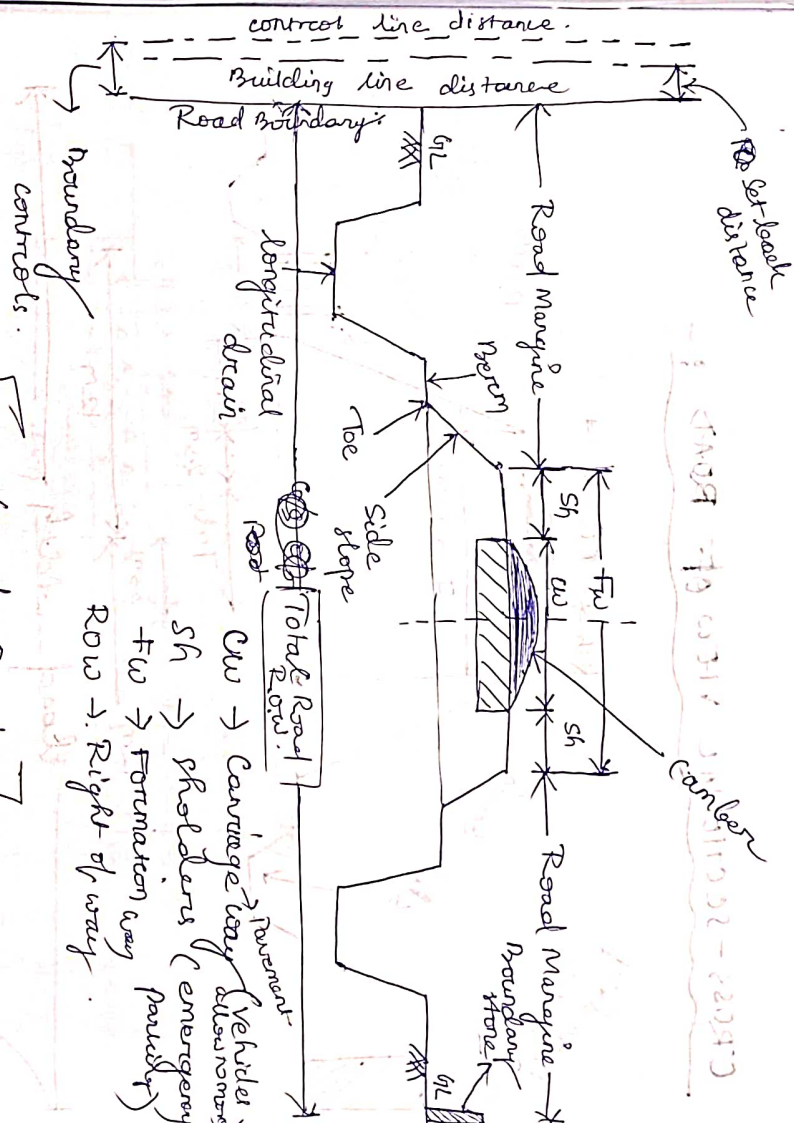 control line distance.
Building line distance
Road Boundary.
Set back
distance
Boundary
controls.
GL
Road Margine
longitudinal
drain
Berm
Toe
Side
slope
Sh
CW
FW
Sh
camber
Road Margine
Boundary
stone
GL
Total Road
R.O.W.
CW → Carriage way (vehicles
→ Pavement
Sh → Sholders (emergency
parking)
FW → Formation way
ROW → Right of way.